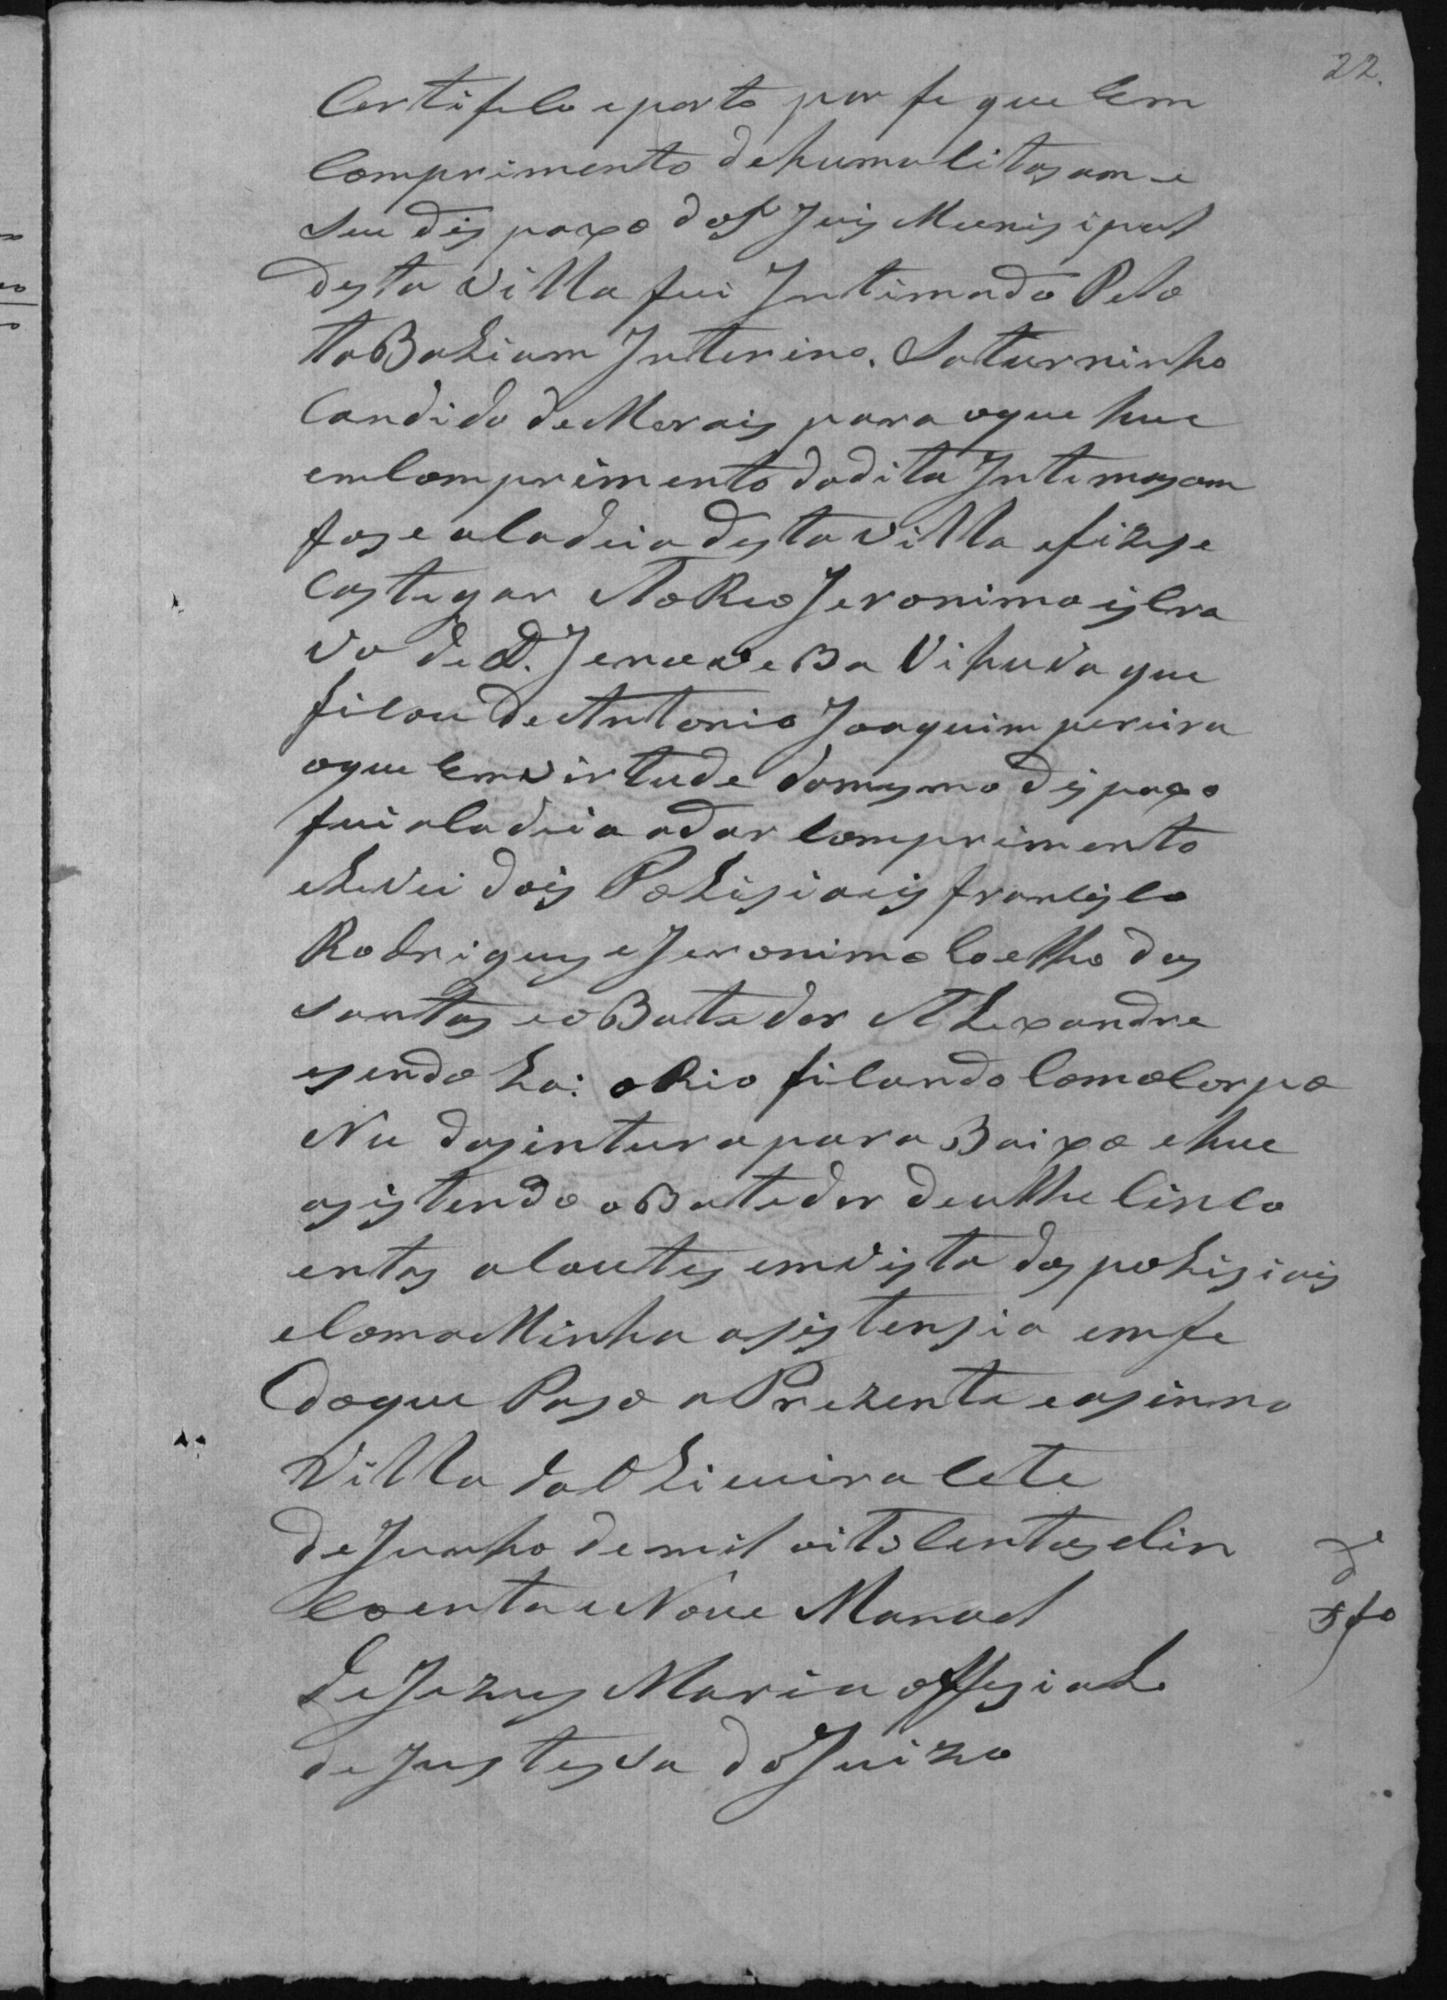 22.
Certifico e porto por fe que Em
Comprimento de huma Citasam e
seu dispaxo do Sr Juis Munisipal
desta Villa fui Intimado Pelo
taBaliam Interino. Saturninho
Candido de Morais para oque hue
em Comprimento da dita Intimasam
fose a Cadeia desta Villa e fizese
Castegar Ao Reo Jeronimo iscra
vo de D. JenoveBa Vihuva que
ficou de Antonio Joaquim pereira
oque Em virtude do mesmo dispaxo
fui a Cadeia a dar Comprimento
e Levei dois Polisiaeis francisco
Rodrigues e Jeronimo Coelho dos
santos e o Batedor Alexandre
esendo La: o Rio ficando Com o Corpo
Nu da sintura para Baixo e hue
asistendo o Batedor deu lhe Cinco
entos a Coutes em vista dos polisiais
e Com a Minha asistensia em fe
do que Paso a Prezente e asinno
Villa da Oliueira Cete
de Junho de mil oito Centos e Cin
Coenta e Nove Manoel
de Jezus Maria offesial
de Justesva do Juizo